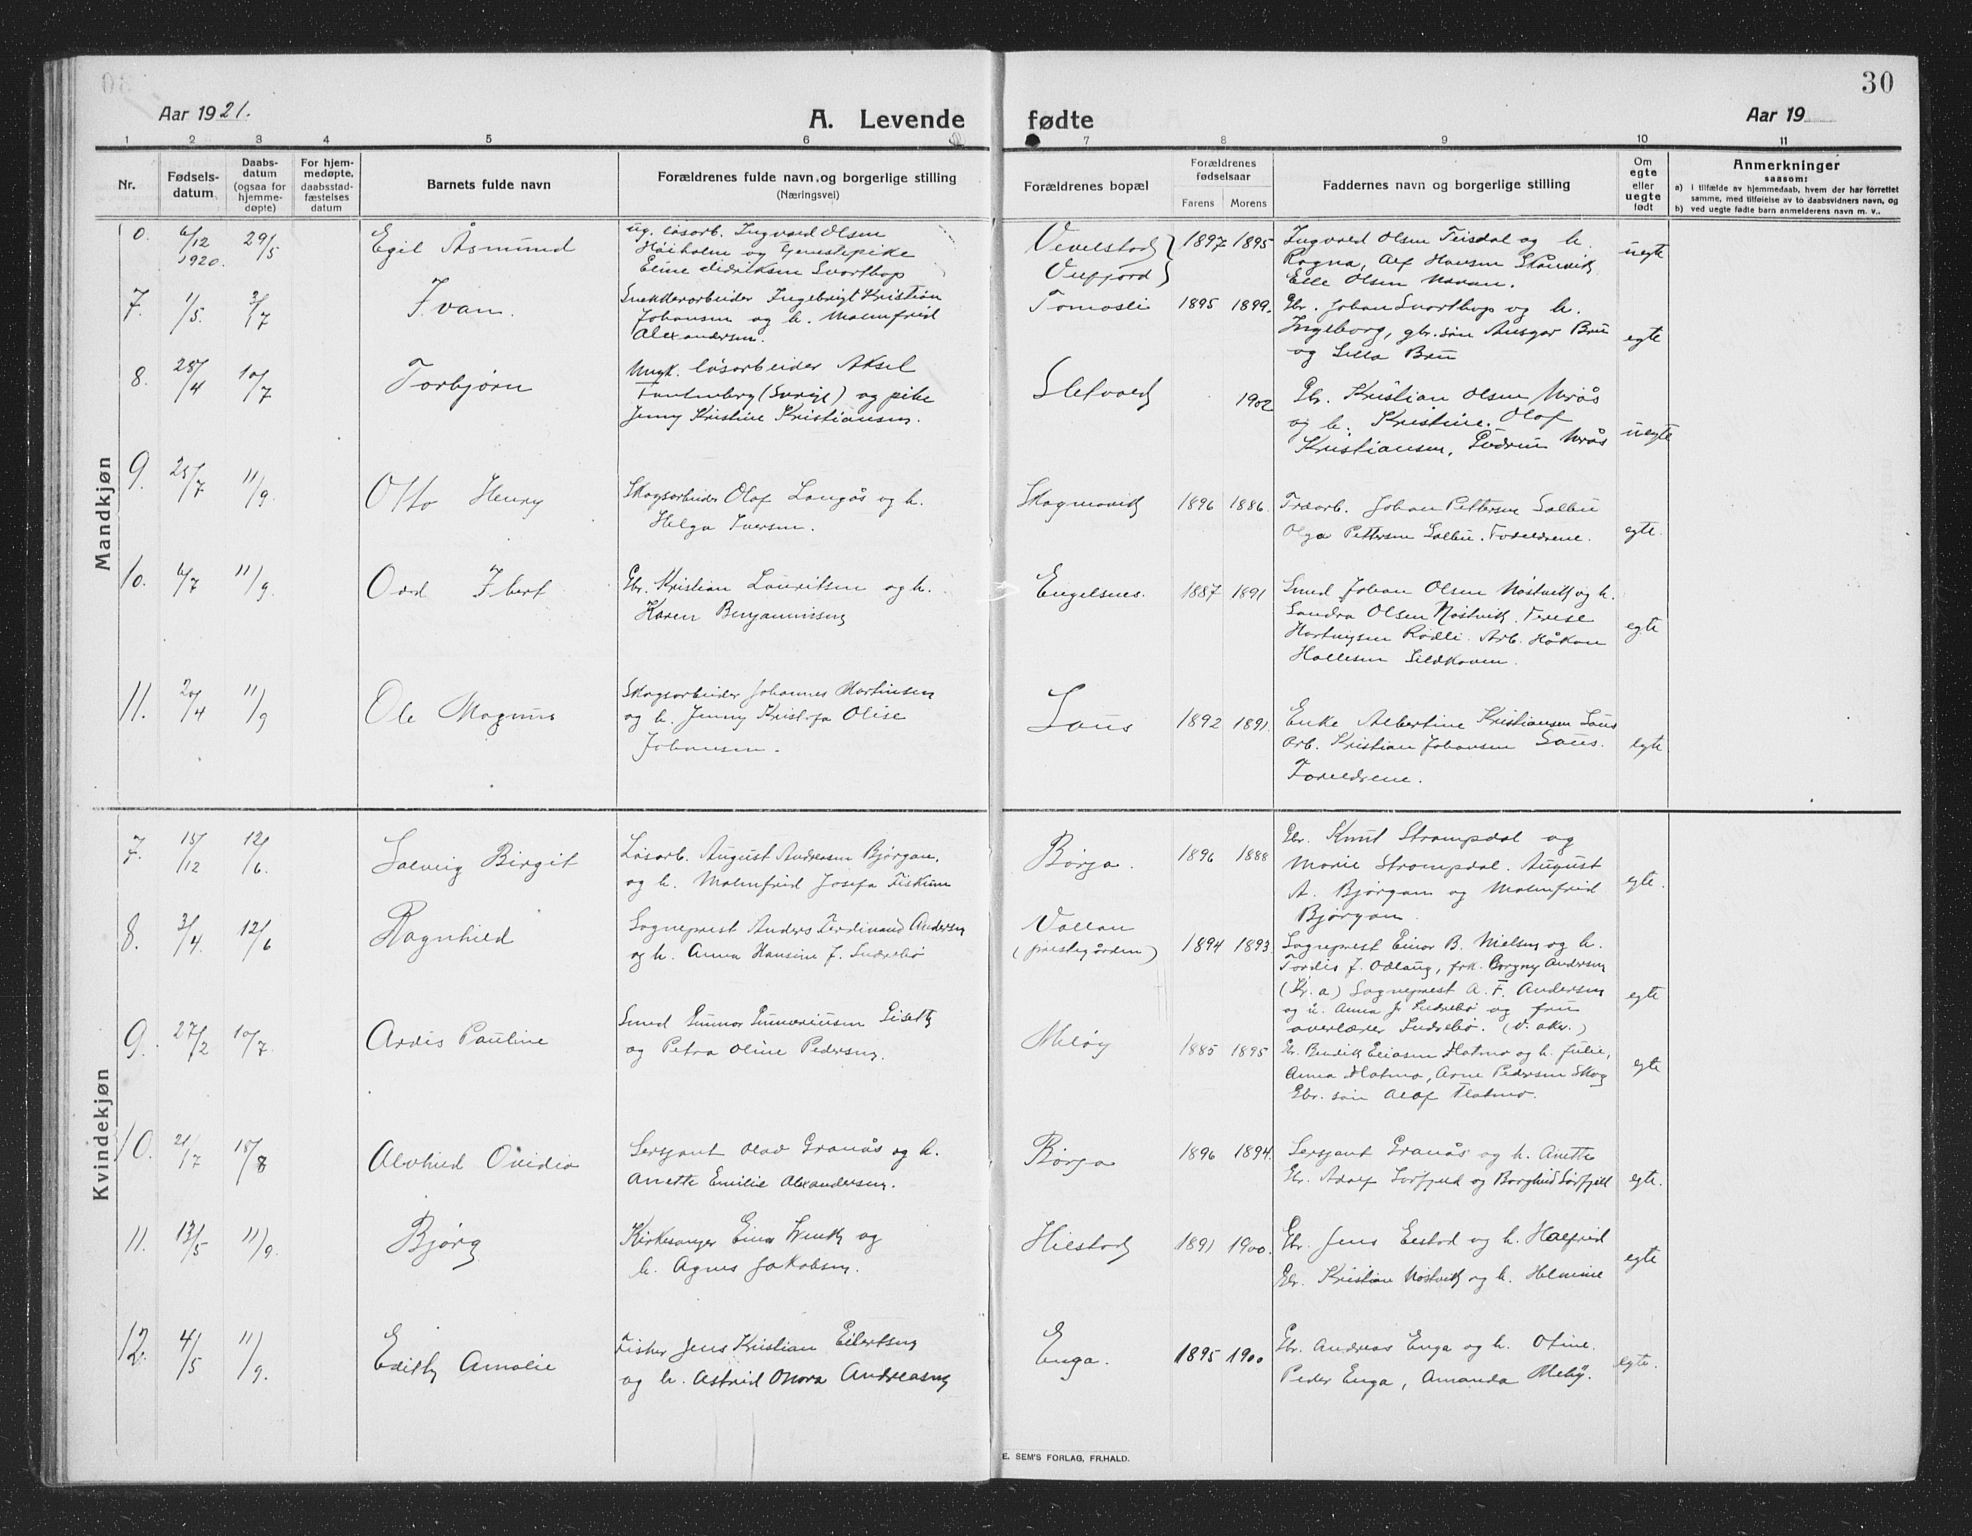 30
Aar 1921.
A. Levende
fødte
Aar 19
1 2 3 4 5 6 7 8 9 10 11
Nr.
Fødsels-
datum
Daabs-
datum
(ogsaa for
hjemme-
døpte)
For hjem-
medøpte.
daabsstad-
fæstelses
datum
Barnets fulde navn
Forældrenes fulde navn og borgerlige stilling
(Næringsvei)
Forældrenes bopæl
Forældrenes
fødselsaar
Farens Morens
Faddernes navn og borgerlige stilling
Om
egte
eller
uegte
født
Anmerkninger
saasom:
a) i tilfælde av hjemmedaab, hvem der har forrettet
samme, med tilføielse av to daabsvidners navn, og
b) ved uegte fødte barn anmelderens navn m. v..
Mandkjøn
0. 6/12 1920. 29/5 Egil Åsmund
ug. løsarb. Ingvald Olsen
Høiholm og tjenestepike
Eline Didriksen Svorthop
Vevelstad
Velfjord
1897 1895
Ingvald Olsen Teisdal og h.
Ragna, Alf Hansen
Elle Olsen
uegte
7. 1/5. 3/7 Ivan.
Snekkerarbeider Ingebrigt Kristian
Johansen og h. Malmfrid
Alexandersen.
Tomasli 1895 1899.
Gbr. Johan Svorthop og h.
Ingeborg, gbr. søn Ansgar Bru
og Lilla Bru
egte
8. 28/4 10/7 Torbjørn
Ungk. løsarbeider Aksel
(Sverige) og pike
Jenny Kristine Kristiansen.
Sletvard 1902
Gbr. Kristian Olsen Urås
og h. Kristine. Olaf
Kristiansen, Gudrun Urås
uegte
9. 25/7 11/9. Otto Henry
Skogsarbeider Olaf Langås og h.
Helga Iversen.
Skogmovik 1896 1886.
Johan Pettersen Salbu
Olga Pettersen Salbu. Foreldrene.
egte.
10. 6/7 11/9. Odd Ibert
Gbr. Kristian Lauritsen og h.
Karen Benjaminsen
Engelsnes. 1887 1891
Smed Johan Olsen Nøstvik og h.
Sandra Olsen Nøstvik. Terese
Hartvigsen Rødli. Arb. Håkon
egte
11. 20/4 11/9 Ole Magnus
Skogsarbeider Johannes Martinsen
og h. Jenny Kristofa Olise
Johansen.
Saus 1892 1891.
Enke Albertine Kristiansen Saus
Arb. Kristian Johansen Saus.
Foreldrene.
egte
Kvindekjøn
7. 15/12 12/6. Solveig Birgit
Løsarb. August Andreasen Bjørgan.
og h. Malmfrid Josefa Fiskum
Børja. 1896 1888
Gbr. Knut Strompdal og
Marie Strompdal. August
A. Bjørgan og Malmfrid
Bjørgan.
egte.
8. 3/4. 12/6 Ragnhild
Sogneprest Anders Ferdinand Andersen
og h. Anna Hansine f. Indrebø
Vallan
(prestegården) 1894 1893.
Sogneprest Einar B. Nielsen og h.
Tordis f. Odlaug, frk. Borgny Andersen
(Kr.a) Sogneprest A. F. Andersen
og h. Anna f. Indrebø og fru
overlærer Indrebø.
egte
9. 27/2 10/7 Ardis Pauline
Smed Gunnar Gunneriussen Liseth
og Petra Oline Pedersen.
Meløy 1885 1895
Gbr. Bendik Eliasen Flatmo og h. Julie,
Anna Flatmo, Arne Pedersen Skog
Gbr. søn Alaf Flatmo.
egte
10. 21/7 15/8 Alvhild Ovidia
Sersjant Olav Granås og h.
Anette Emilie Alexandersen.
Børja 1896 1894.
Sersjant Granås og h. Anette
Gbr. Adolf Sørfjeld og Borghild Sørfjell
egte.
11. 13/5 11/9. Bjørg
Kirkesanger Einar Wenth og
h. Agnes Jakobsen.
Hilstad 1891 1900.
Gbr. Jens Eestad og h. Halfrid
Gbr. Kristian Nøstvik og h. Helmine
egte
12. 4/5 11/9. Edith Amalie
Fisker Jens Kristian Eilertsen
og h. Astrid Onora Andreasen
Enga. 1895 1900
Gbr. Andreas Enga og h. Otine.
Peder Enga, Amanda Meløy.
egte.
E. SEM'S FORLAG, FR.HALD.